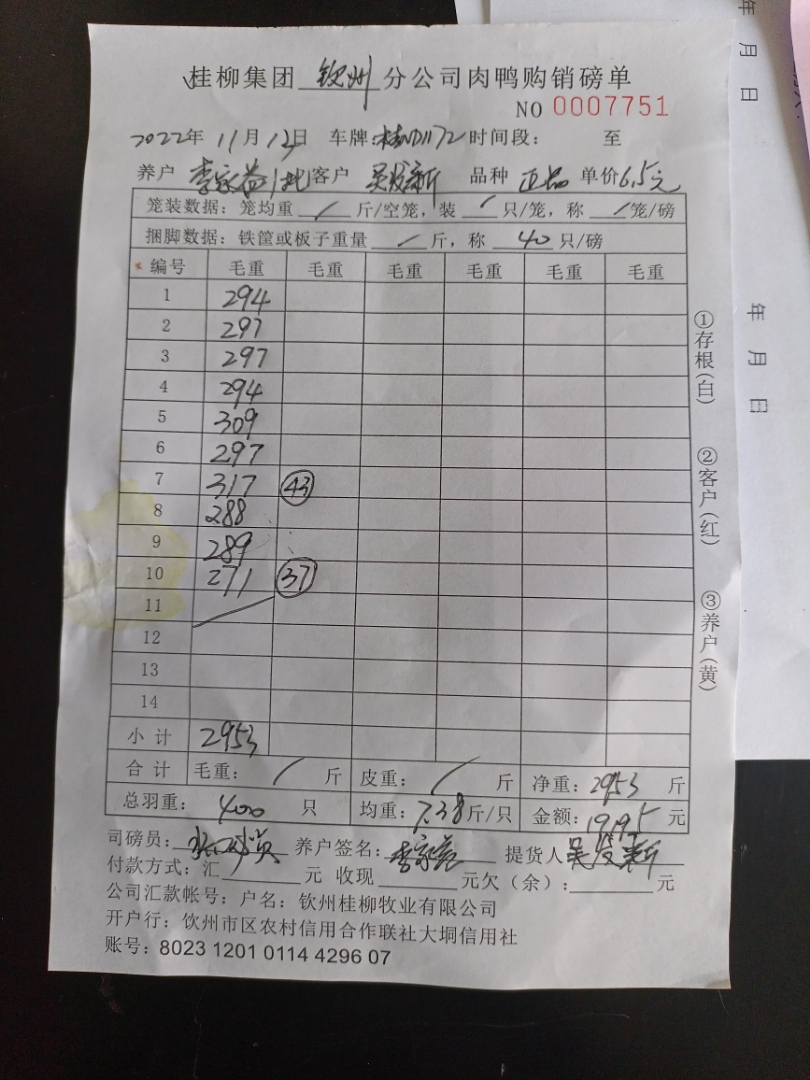 桂柳集团 钦州 分公司肉鸭购销磅单
NO 0007751
2022年 11月 12日 车牌: 时间段: 至
养户 客户 吴发新 品种 正品 单价6.5元
笼装数据: 笼均重 / 斤/空笼, 装 / 只/笼, 称 / 笼/磅
捆脚数据: 铁筐或板子重量 / 斤, 称 40 只/磅
编号 毛重 毛重 毛重 毛重 毛重 毛重
1 294
2 297
3 297
4 294
5 309
6 297
7 317 43
8 288
9 289
10 271 37
11
12
13
14
小计 2953
合计 毛重: / 斤 皮重: / 斤 净重: 2953 斤
总羽重: 400 只 均重: 7.38斤/只 金额: 19195元
司磅员: 养户签名: 提货人 吴发新
付款方式: 汇 元 收现 元欠(余): 元
公司汇款帐号: 户名: 钦州桂柳牧业有限公司
开户行: 钦州市区农村信用合作联社大垌信用社
账号: 8023 1201 0114 4296 07
①存根(白) ②客户(红) ③养户(黄)
年 月 日
年 月 日